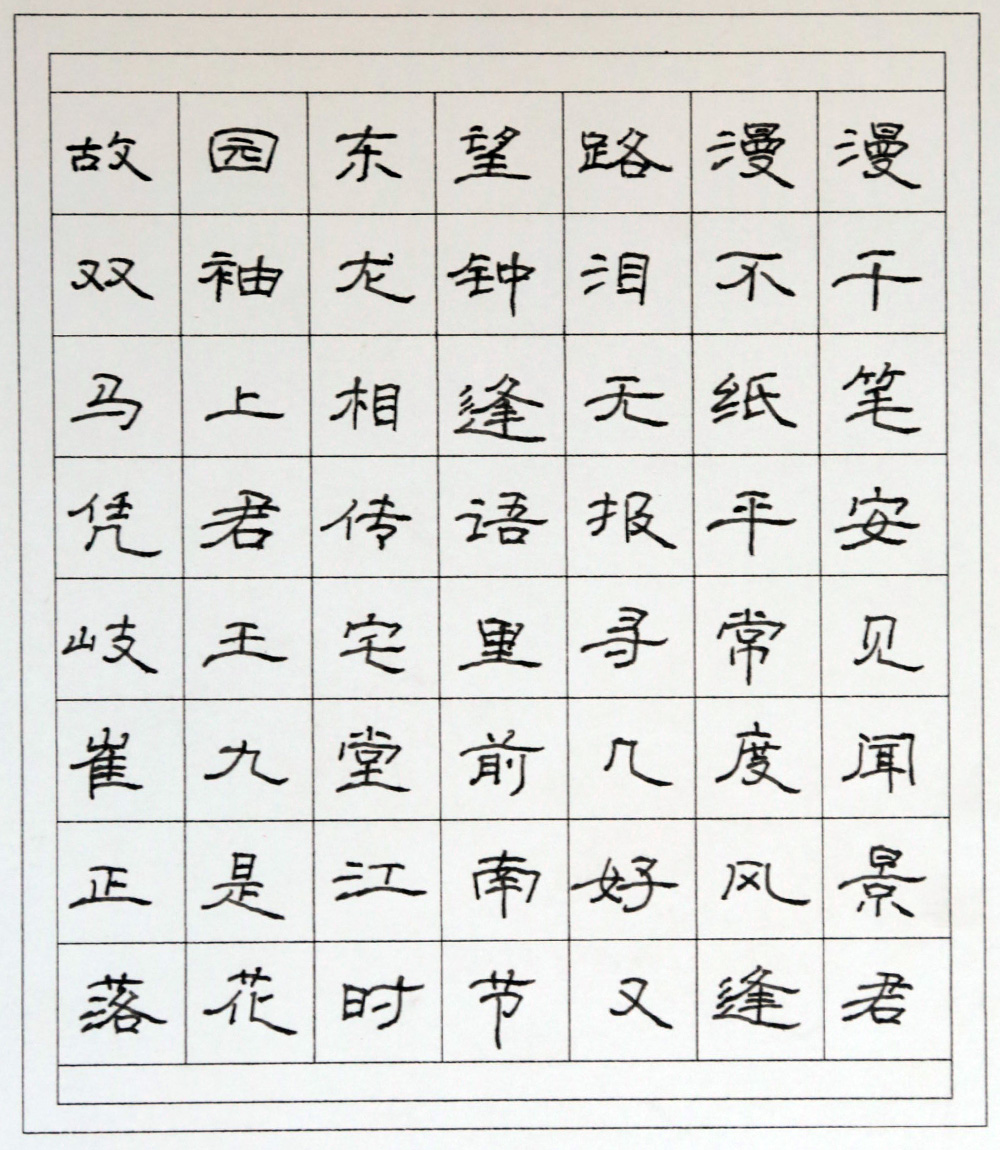 故园东望路漫漫
双袖龙钟泪不干
马上相逢无纸笔
凭君传语报平安
岐王宅里寻常见
崔九堂前几度闻
正是江南好风景
落花时节又逢君